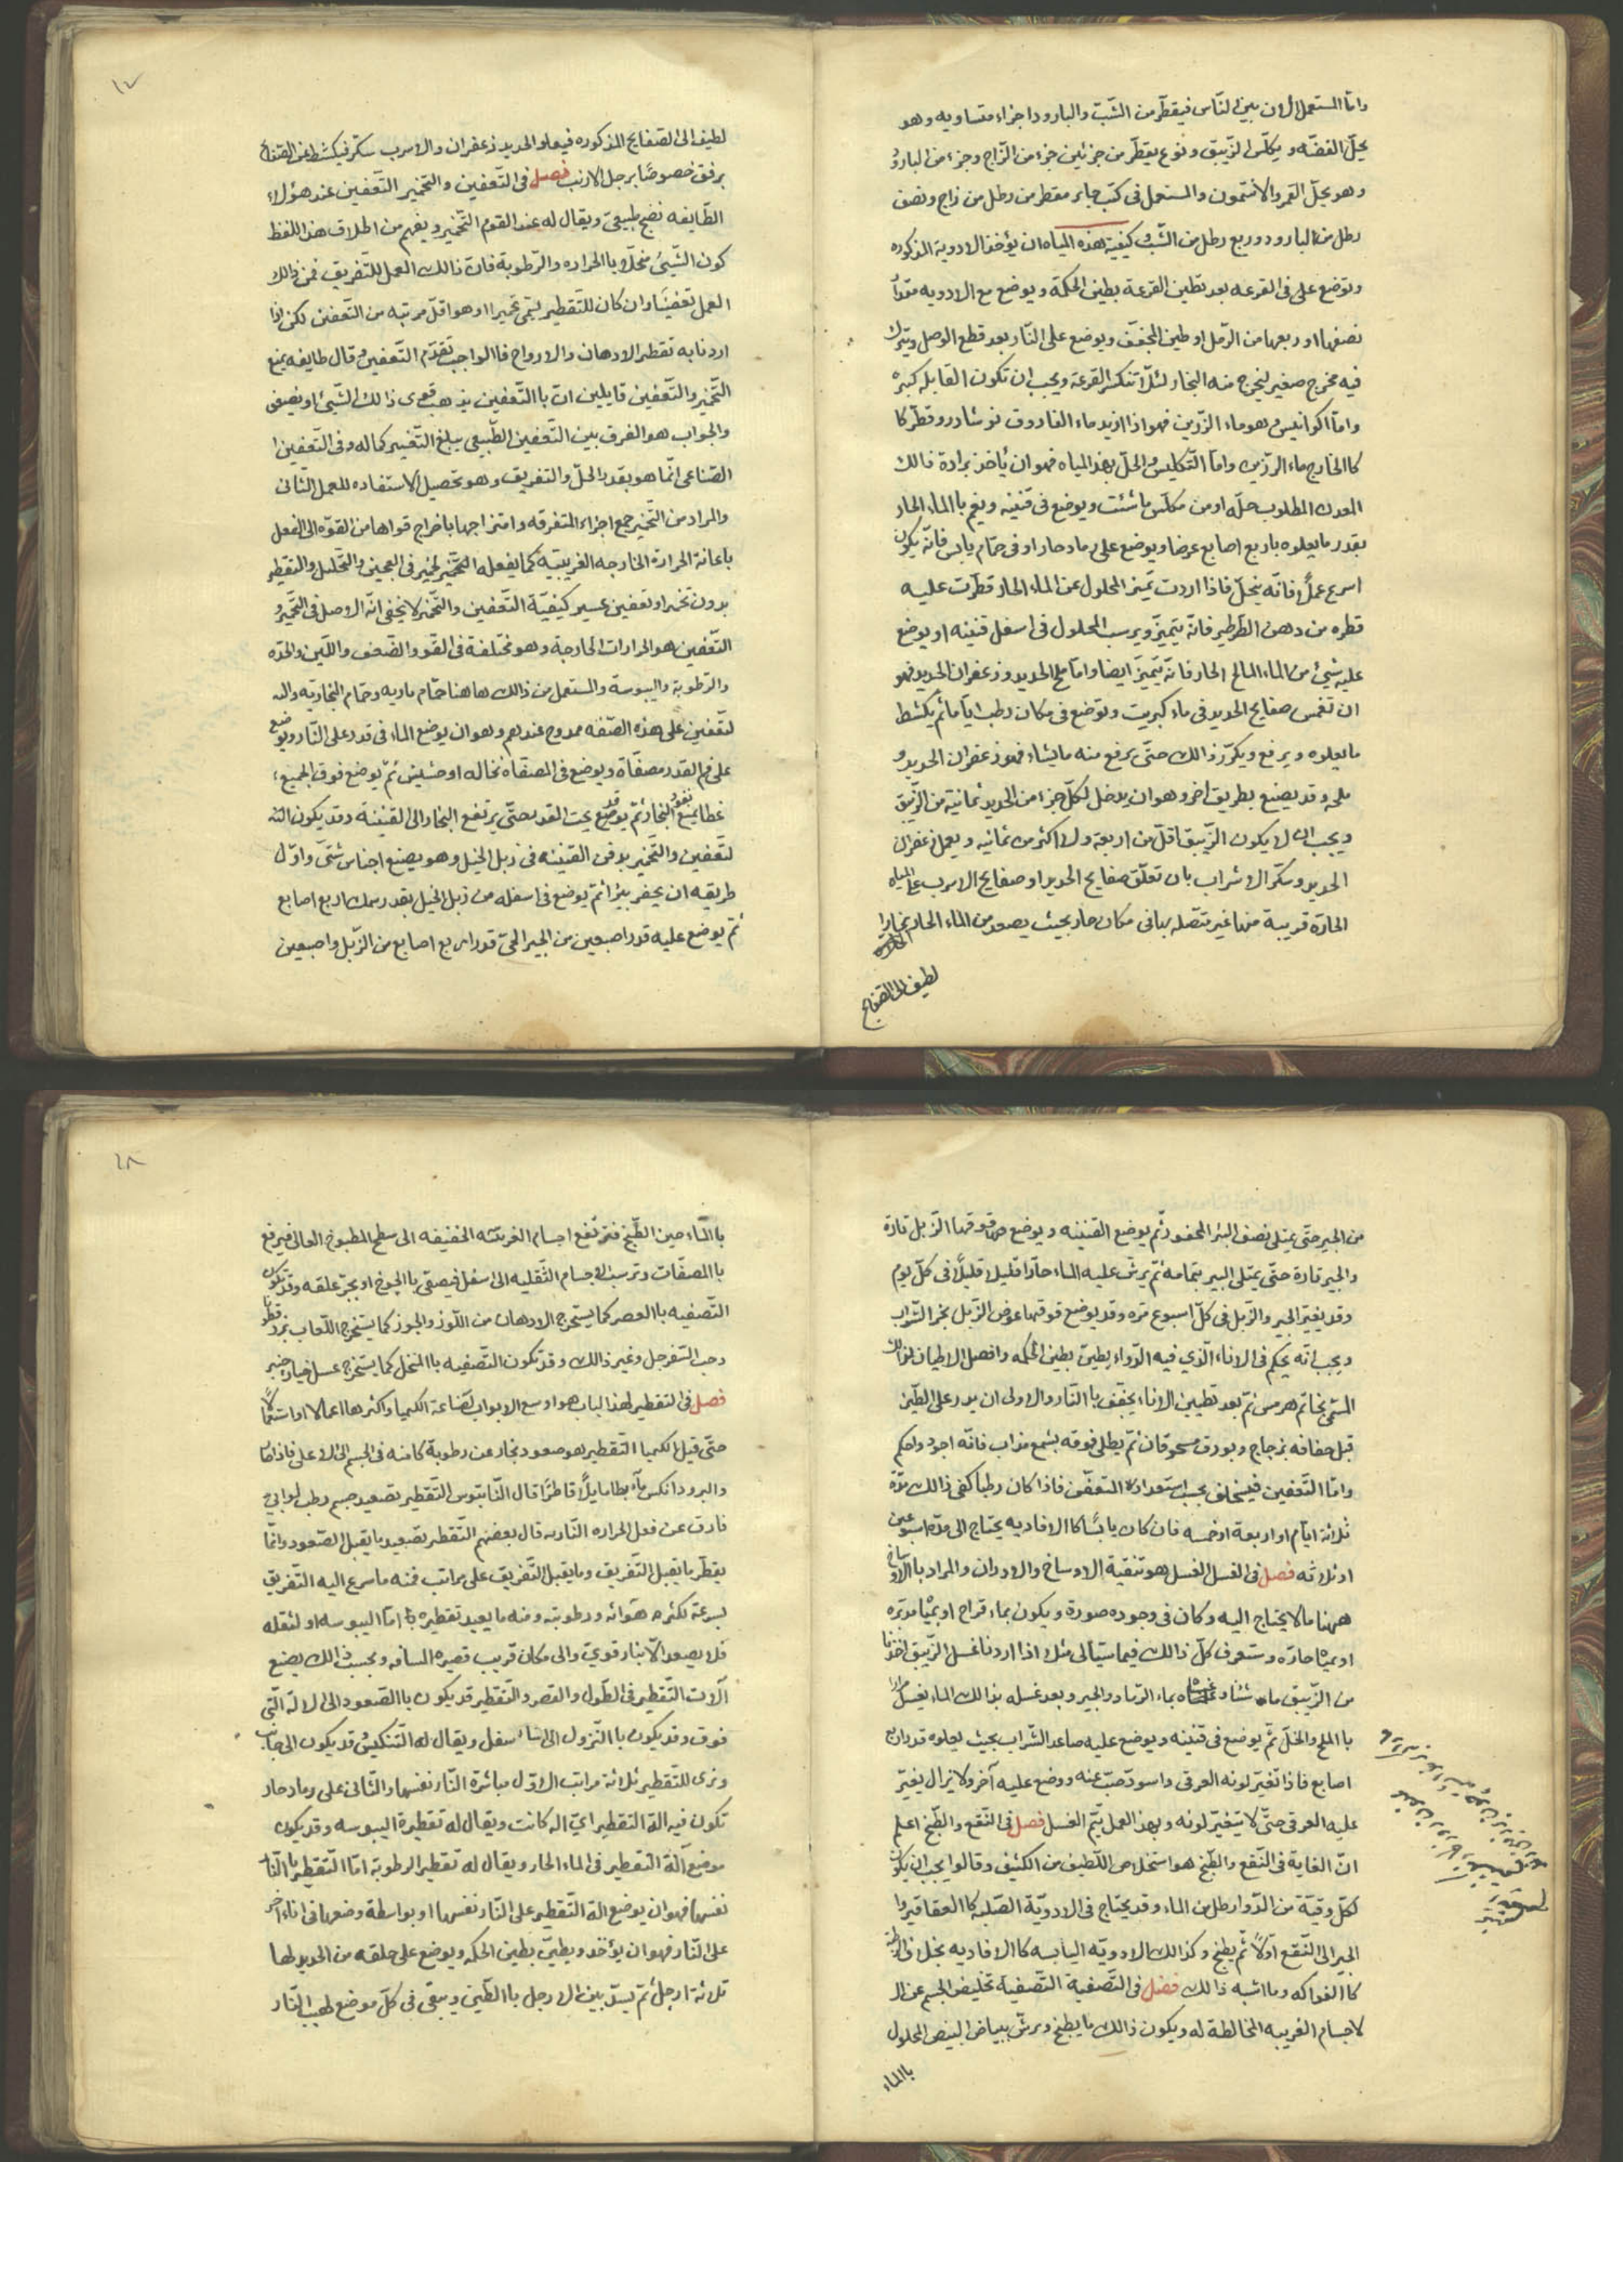 وامّا المستعمل الان بين الناس فيقطّر من الشّبّ والبارود اجزاء متساويه وهو
يحلّ الفضّه ويكلّس الزيبق ونوع يقطّر من جزئين جزء من الزّاج وجزء من البارود
وهو يحلّ القمر والانتمون والمستعمل فى كتب جابر مقطر من رطل من زاج ونصف
رطل من البارود وربع رطل من الشّبّ وكيفية هذه المياه ان يؤخذ الادوية المذكوره
وتوضع على فى القرعه بعد تطين القرعة بطين الحكمة ويوضع مع الادويه مقدار
نصفها او ربعها من الرّمل او طين المجفّف ويوضع على النّار بعد قطع الوصل ويترك
فيه مخرج صغير ليخرج منه البخار لئلّا تنكسر القرعة ويجب ان تكون القابله كبيره
وامّا اكوانيس وهو ماء الرّزين فهو اذا ازيد ماء الفاروق نوشادر وقطّر كا
كا الخارج ماء الرّزين وامّا التّكليس والحلّ بهذ المياه فهو ان ياخذ برادة ذالك
المعدن المطلوب حلّه او من مكلّس ما شئت ويوضع فى قنينه ويغم با الماء الحار
بقدر ما يعلوه باربع اصابع عرضا ويوضع على رماد حار او فى حمّام يابس فانّه يكون
اسرع عملًا فانّه ينحلّ فاذا اردت تميّز المحلول عن الماء الحار قطّرت عليه
قطره من دهن الطّرطير فانّه يتميّز ويرسب المحلول فى اسفل قنينه او يوضع
عليه شيئ من الماء المالح الحار فانّه يتميّز ايضا وامّا ملح الحديد وزعفران الحديد فهو
ان تغمس صفايح الحديد فى ماء كبريت وتوضع فى مكان رطب ايّاما ثم يكشط
ما يعلوه ويرفع ويكرّر ذالك حتّى يرفع منه ما يشاء فهو زعفران الحديد و
ملحه وقد يصنع بطريق اخر وهو ان يدخل لكلّ جزء من الحديد ثمانية من الزّيبق
ويجب ان لا يكون الزّيبق اقلّ من اربعة ولا اكثر من ثمانيه ويعمل زعفران
الحديد وسكّر الاشراب بان تعلّق صفايح الحديد او صفايح الاسرب على المياه
الحارّة قريبة منها غير متّصله بها فى مكان حار بحيث يصعد من الماء الحار بخارا
لطيف الى الصّفايح
١٧
لطيف الى الصّفايح المذكوره فيعلو الحديد زعفران والاسرب سكّر فيكشط عن الصّفايح
برفق خصوصًا برجل الارنب فصل فى التّعفين والتّخمير التّعفين عند هؤلاء
الطّايفه نضج طبيعىّ ويقال له عند القوم التّخمير ويفهم من اطلاق هذا اللفظ
كون الشّيئ منحلّا با الحراره والرّطوبة فان ذالك العمل للتّفريق فمن ذالك
العمل تعفينًا وان كان للتّقطير يسمّى تخميرا وهو اقلّ مرتبه من التّعفين لكن اذا
اردنا به تقطير الادهان والارواح فا الواجب تقدّم التّعفين وقال طايفه بمنع
التّخمير والتّعفين قايلين انّ با التّعفين يذهب قوى ذالك الشّيئ او يضعف
والجواب هو الفرق بين التّعفين الطّبيعى يبلغ التّغيير كماله وفى التّعفين ا
الصّناعى انّما هو بقدر الحلّ والتفريق وهو تحصيل الاستفاده للعمل الثّانى
والمراد من التّخمير جمع اجزاء المتفرقه وامتزاجها باخراج قواها من القوّه الى الفعل
باعانة الحرارة الخارجه الغريبيّة كما يفعله التّخمير لخمير فى العجين والتّحليل والتّقطير
بدون تخمير او تعفين عسير كيفيّة التّعفين والتّخمير لا يخفى انّه الاصل فى التّخمير و
التّعفين هو الحرارات الخارجة وهو مختلفة فى القوّ والضّعف واللّين والحدّه
والرّطوبة واليبوسة والمستعمل من ذالك هاهنا حمّام ماريه وحمّام البخاريّه والته
لتعفين على هذه الصّفه ممدوح عندهم وهو ان يوضع الماء فى قدر على النّار ويوضع
على فم القدر مصفاة ويوضع فى المصفاة نخاله او حشيش ثمّ يوضع فوق الجميع
غطا يمنع نفوذ البخار ثمّ يوقد يوضع تحت القدر حتّى يرتفع البخار الى القنينة وقد يكون الته
لتعفين والتّخمير بدفن القنينه فى زبل الخيل وهو يصنع اجناس شتّى واوّل
طريقه ان يحفر بيرا ثمّ يوضع فى اسفله من زبل الخيل بقدر سمك اربع اصابع
ثمّ يوضع عليه قدر اصبعين من الجير الحىّ قدر اربع اصابع من الزّبل واصبعين
من الجير حتّى يمتلى نصف البئر المحفور ثمّ يوضع القنينه ويوضع فوقها الزّبل تارة
والجير تارة حتّى يمتلى البير بتمامه ثمّ يرشّ عليه الماء حارّا قليلا قليلًا فى كلّ يوم
وقد يغيّر الجير والزّبل فى كلّ اسبوع مرّه وقد يوضع فوقها عوض الزّبل بخر الشّراب
ويجب انّه يحكم فى الاناء الّذى فيه الدّواء بطين بطين الحكمه وافضل الاطيان لذالك
المسمّى بخاتم هرمس ثمّ بعد تطيين الاناء يجفّف با النّار والاولى ان يدر على الطّين
قبل جفافه بزجاج وبورق مسحوقان ثمّ يطلى فوقه بشمع مذاب فانّه اجود واحكم
وامّا التّعفين فيختلف بحسب استعداده المتعفّن فاذا كان رطبا كفى ذالك مدّة
ثلاثة ايّام او اربعة او خمسه فان كان يابسًا كا الافاديه يحتاج الى مدّة اسبوعين
او ثلاثه فصل فى الغسل الغسل هو تنقية الاوساخ والادران والمراد با الاوساخ
ههنا ما لا يحتاج اليه وكان فى وجوده صورة ويكون بماء قراح او بمياه مدبّره
او بمياه حارّه وستعرف كلّ ذالك فيما سيأتى مثلا اذا اردنا غسل الزّيبق اخذنا
من الزّيبق ما شئنا وغسلناه بماء الرّماد والجير وبعد غسله بذالك الماء يغسل مرارا
با الملح والخلّ ثمّ يوضع فى قنينه ويوضع عليه صاعد الشّراب بحيث يعلوه قدر اربع
اصابع فاذا تغيّر لونه العرقى واسودّ صبّ عنه ووضع عليه آخر ولا يزال يغيّر
عليه العرقى حتّى لا يتغيّر لونه وبهذ العمل يتّم الغسل فصل فى النّقع والطّبخ اعلم
انّ الغاية فى النّقع والطّبخ هو استخلاص اللّطيف من الكثيف وقالوا يجب ان يكون
لكلّ وقيّة من الدّوا رطل من الماء وقد يحتاج فى الادويّة الصّلبه كا العقاقير وا
الجير الى النّقع اوّلًا ثم يطبخ وكذالك الادويّه اليابسه كا الافاديه بخلاف الرّطبة
كا الفواكه وما اشبه ذالك فصل فى التّصفية التّصفية تخليص الجسم عن الـ
لاجسام الغريبه المخالطة له ويكون ذالك ما يطبخ ويرشّ ببياض البيض المحلول
با الماء
١٨
با الماء حين الطّبخ فترتفع اجسام الغريبّه الخفيفه الى سطح المطبوخ العالى فيرفع
با المصفّات وترسب الاجسام الثّقيله الى اسفل فيصفى با الجوخ او بجرّ علقه وقد يكون
التّصفيه با العصر كما يستخرج الادهان من اللّوز والجوز كما يستخرج اللّعاب بزر قطونا
وحب السّفرجل وغير ذالك وقد تكون التّصفيه با المنخل كما يستخرج عسل خيار شنبر
فصل فى التقطير لهذ الباب هو اوسع الابواب لصّناعة الكيميا واكثرها اعمالا واستعمالًا
حتّى قيل الكيميا التّقطير هو صعود بخار عن رطوبة كامنه فى الجسم الى الاعلى فاذا
والبرود انكس مآء بطا مايلًا قاطرًا قال النّابتوس التّقطير تصعيد جسم رطب هوايى
فارق عن فعل الحراره النّاريه قال بعضهم التّقطير تصعيد ما يقبل الصّعود وانّما
يقطّر ما يقبل التّفريق وما يقبل التّفريق على مراتب فمنه ما سرع اليه التّفريق
بسرعة لكثره هوائه ورطوبته ومنه ما يعيد تقطيره امّا اليبوسه او لثقله
فلا يصعد الّا بنار قويّ والى مكان قريب قصيره المسافه وبحسب ذالك يصنع
آلات التّقطير فى الطّول والقصر والتّقطير قد يكون با الصّعود الى الالة الّتى
فوق وقد يكون با النّزول الى اسفل ويقال له التّنكيس وقد يكون الى جانب
ونرى للتّقطير ثلاثة مراتب الاوّل مباشرة النّار نفسها والثّانى على رماد حار
تكون فيه الة التقطير اىّ اله كانت ويقال له تقطيرة اليبوسه وقد يكون
موضع آلة التّقطير فى الماء الحار ويقال له تقطير الرطوبة امّا التّقطير با النّار
نفسها فهو ان يوضع الة التّقطير على النّار نفسها او بواسطة وضعها فى اناء آخر
على النّار فهو ان يؤخذ ويطيّن بطين الحكمه ويوضع على حلقه من الحديد لها
ثلاثة ارجل ثم يسدّ بين الارجل با الطّين ويبقى فى كلّ موضع لهيب النّار